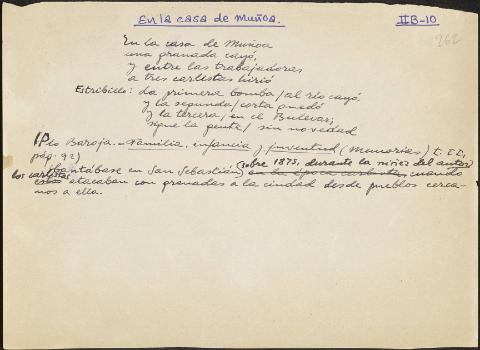 En la casa de Muñoa.
IIB-10
262
En la casa de Muñoa
una granada cayó,
y entre las trabajadoras
a tres carlistas hirió
Estribillo: La primera bomba / al río cayó,
y la segunda / corta quedó
y la tercera / en el Bulevar;
sigue la gente / sin novedad
(Pío Baroja.- Familia, infancia y juventud (Memorias) t. II,
pág. 92)
Cantábase en San Sebastián (sobre 1875, durante la niñez del autor) en la época carlista, cuando
los carlistas atacaban con granadas a la ciudad desde pueblos cerca-
nos a ella.